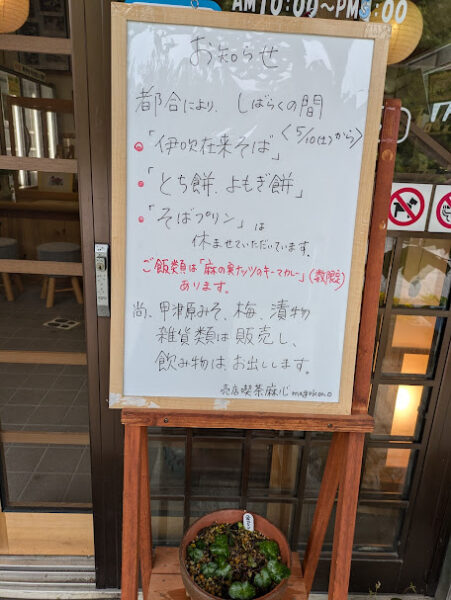 AM10:00~PM5:00
お知らせ
都合により、しばらくの間
<5/10(土)から>
・「伊吹在来そば」
・「とち餅、よもぎ餅」
・「そばプリン」は
休ませていただいています。
ご飯類は「麻の実ナッツのキーマカレー」(数限定)
あります。
尚、甲津原みそ、梅、漬物
雑貨類は販売し、
飲み物はお出しします。
売店喫茶麻心